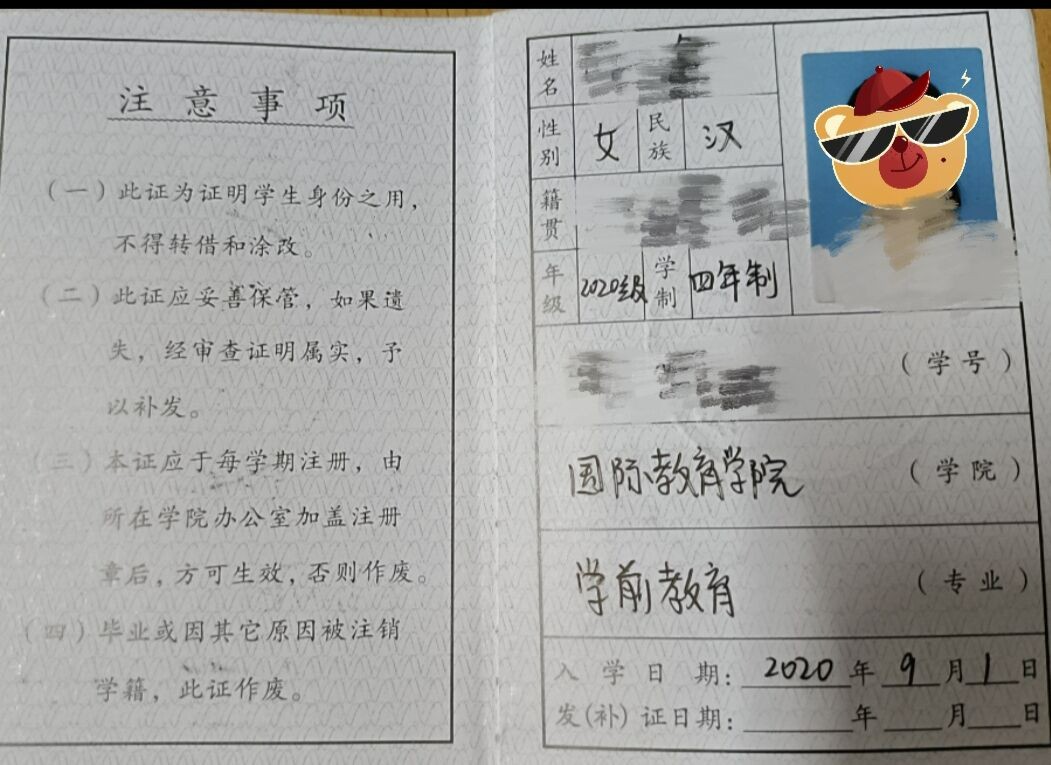 注意事项
（一）此证为证明学生身份之用，
不得转借和涂改。
（二）此证应妥善保管，如果遗
失，经审查证明属实，予
以补发。
（三）本证应于每学期注册，由
所在学院办公室加盖注册
章后，方可生效，否则作废。
（四）毕业或因其它原因被注销
学籍，此证作废。
姓名
性别 女 民族 汉
籍贯
年级 2020级 学制 四年制
（学号）
国际教育学院（学院）
学前教育（专业）
入学日期：2020年9月1日
发(补)证日期：____年__月__日